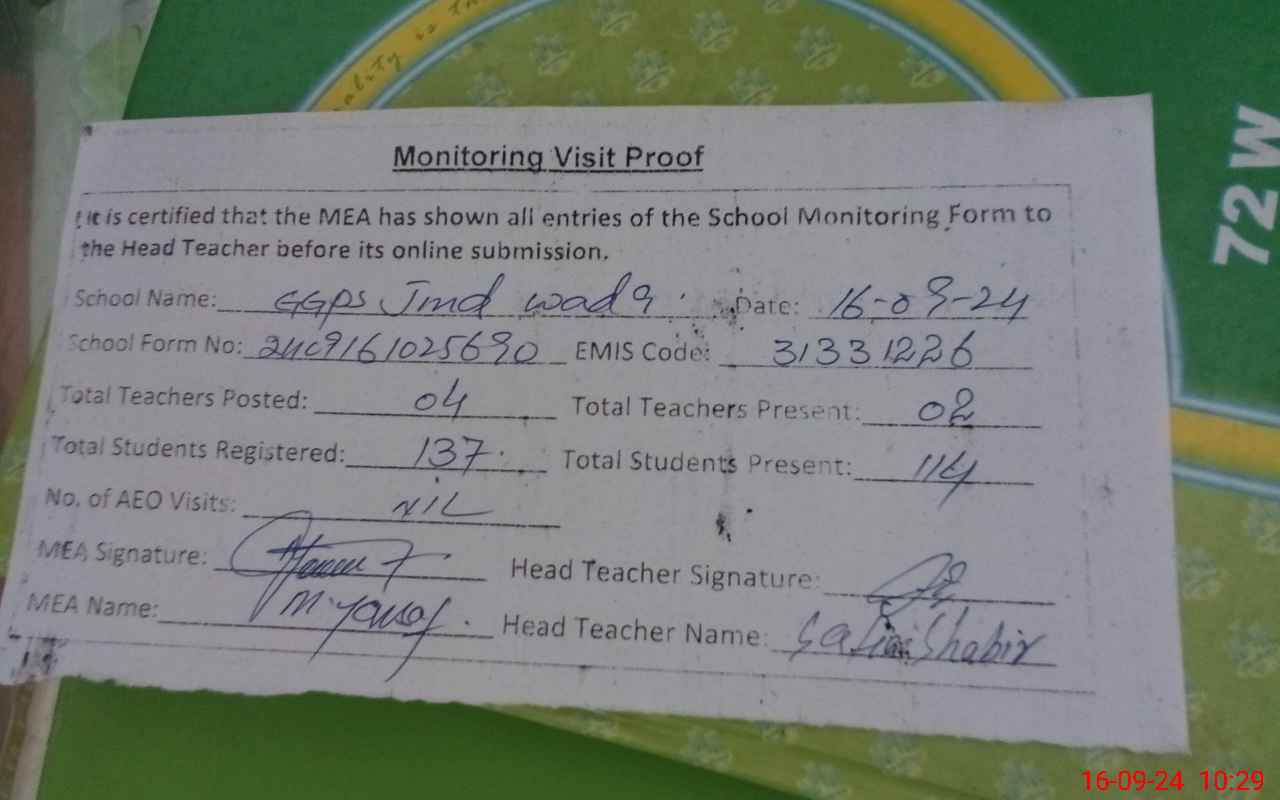 ality is th
72 W
Monitoring Visit Proof
It is certified that the MEA has shown all entries of the School Monitoring Form to
the Head Teacher before its online submission.
School Name: GGPS Jmd wada Date: 16-09-24
School Form No: 2409161025690 EMIS Code: 31331226
Total Teachers Posted: 04 Total Teachers Present: 02
Total Students Registered: 137 Total Students Present: 114
No. of AEO Visits: NIL
MEA Signature: Head Teacher Signature:
MEA Name: M. Yousaf Head Teacher Name: Shabir
16-09-24 10:29